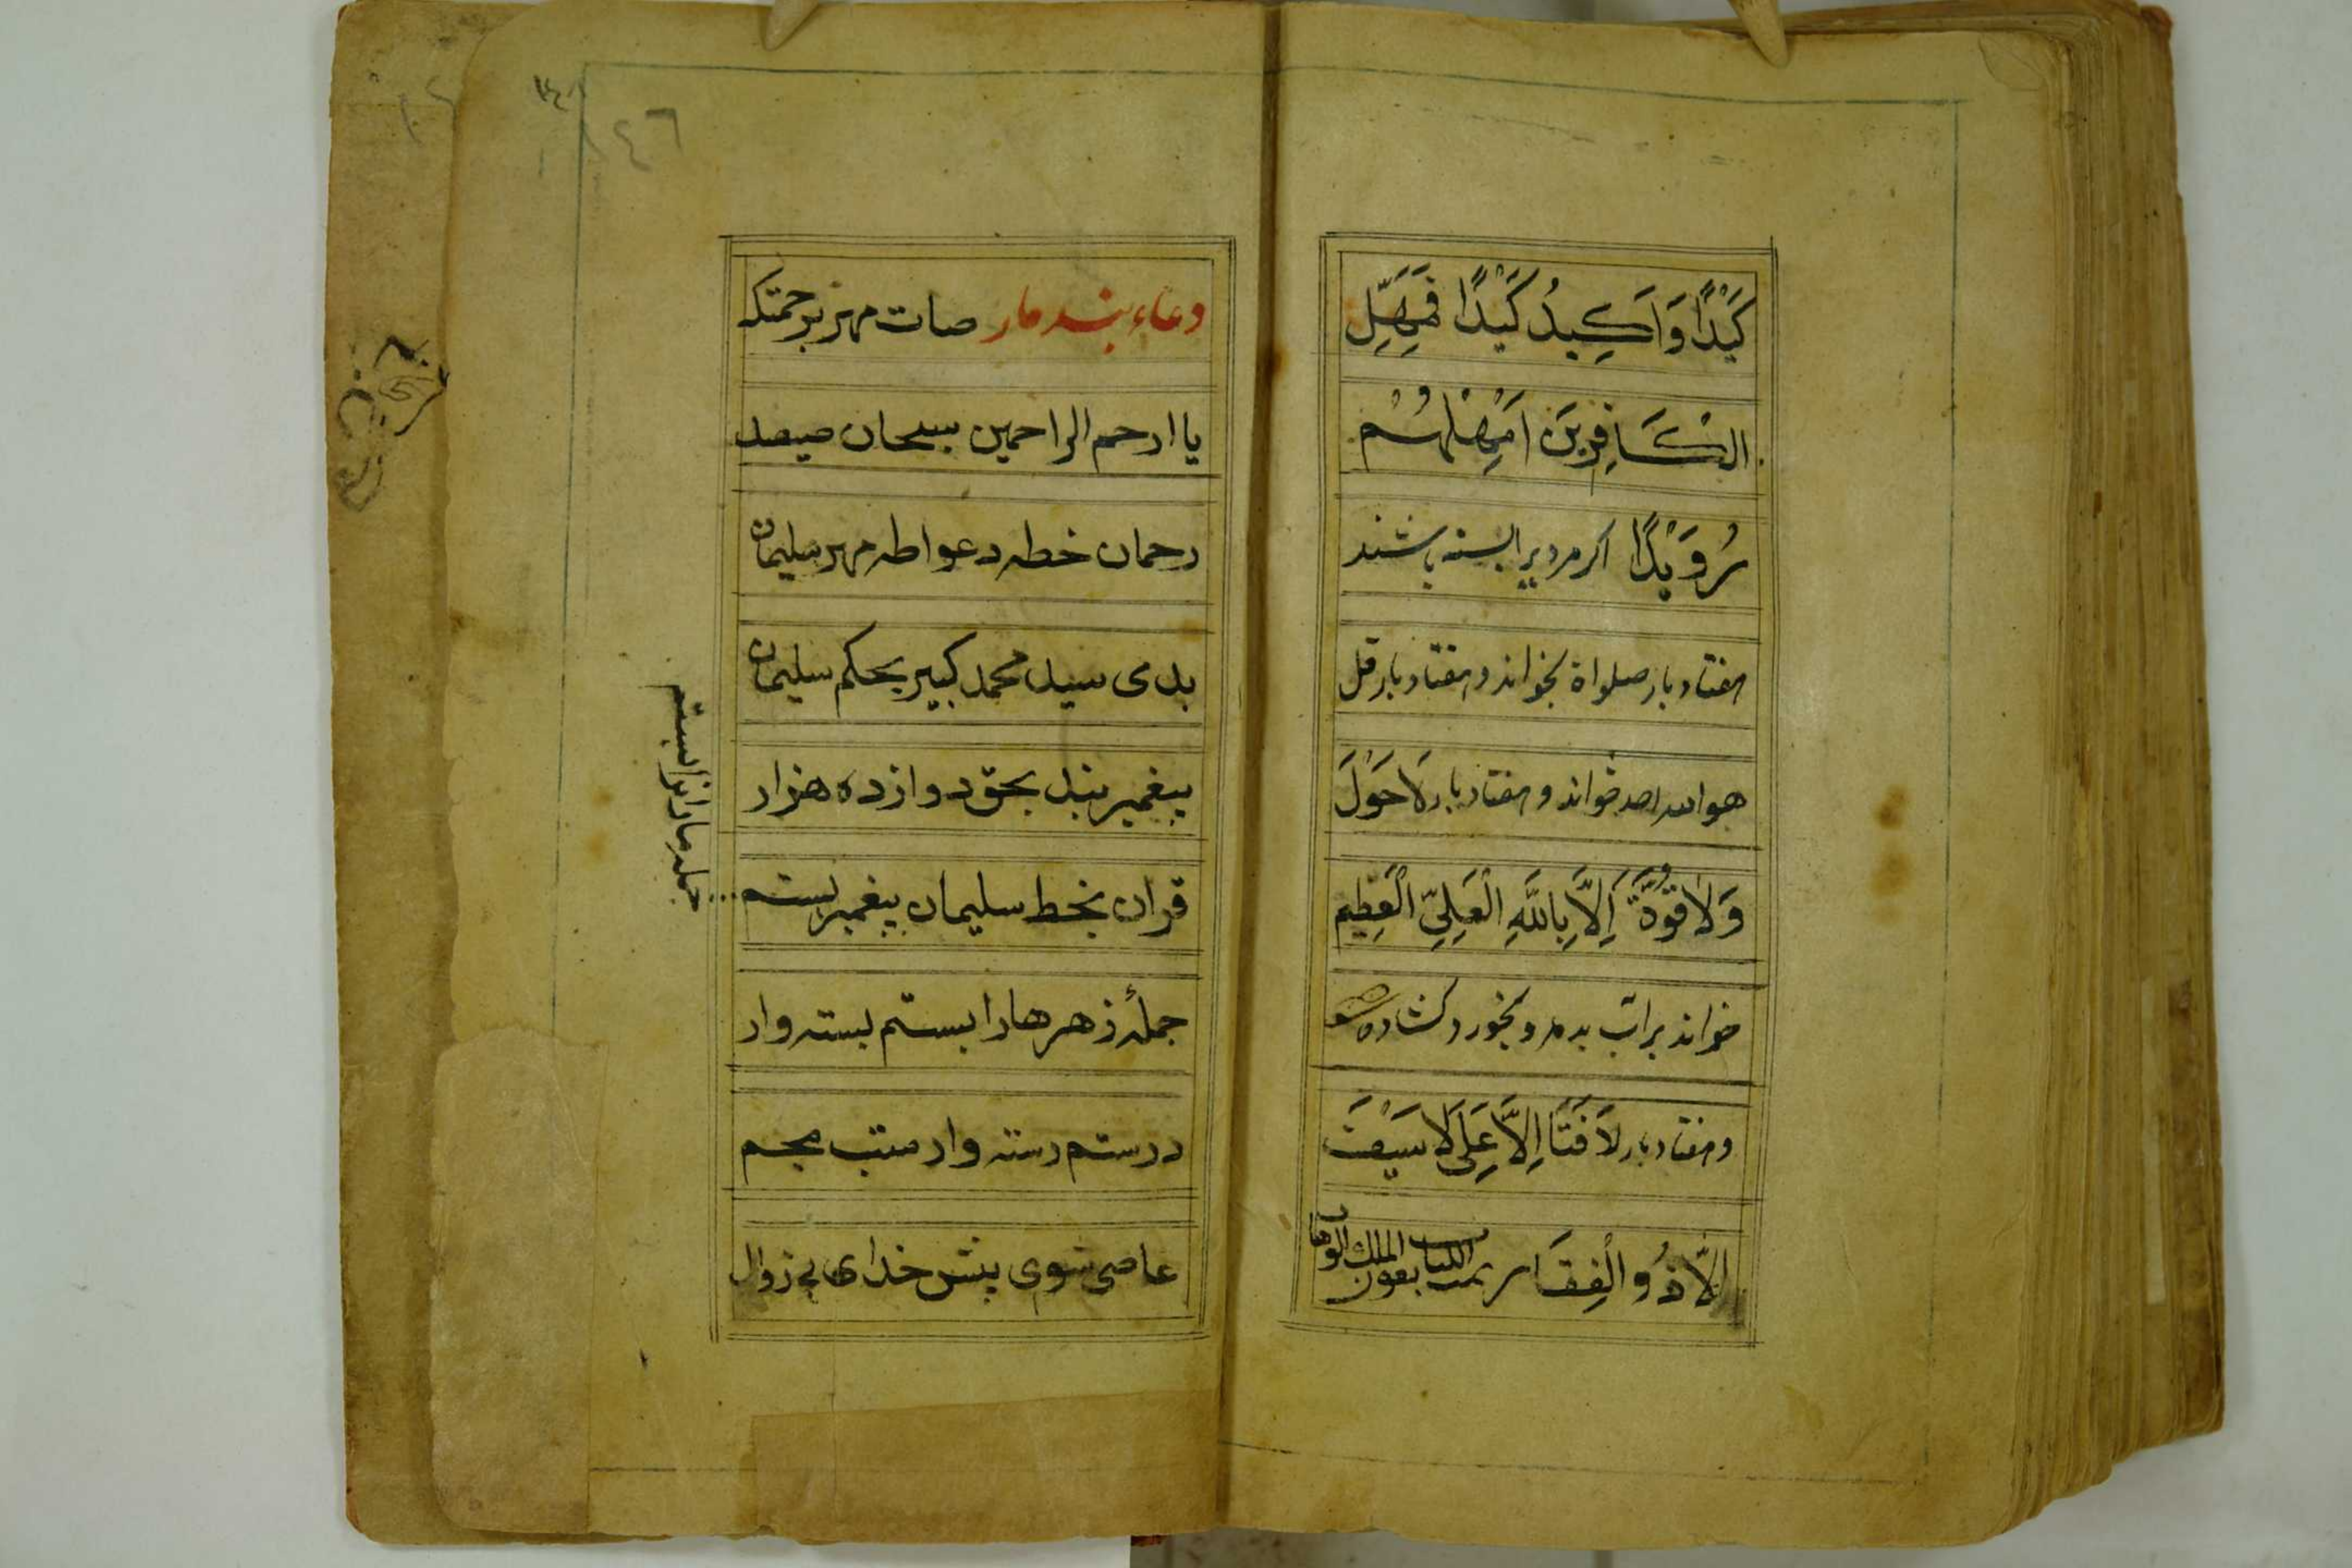 كَيْدًا وَاَكِيدُ كَيْدًا فَمَهِّلِ
الْكَافِرِينَ اَمْهِلْهُمْ
رُوَيْدًا اکر مردیرا بسته باشند
هفتاد بار صلواة بخواند و هفتاد بار قل
هو الله احد خواند و هفتاد بار لَا حَوْلَ
وَلَا قُوَّةَ اِلَّا بِاللَّهِ الْعَلِيِّ الْعَظِيمِ
خواند بر آب بدمد و بخورد کشاده شود
و هفتاد بار لَا فَتَا اِلَّا عَلِی لَا سَيْفَ
اِلَّا ذُو الْفِقَار تمت الكتاب بعون الملك الوهاب
١٤٦
دعاء بند مار صات مهز برحمتک
یا ارحم الراحمین سبحان
رحمان خطه دعواطه مهر سلیمان
بدی سید محمد کبیر بحکم سلیمان
پیغمبر بند بحق دوازده هزار
قران بخط سلیمان پیغمبر بستم
جملهٔ ذهرها را بستم بسته وار
درستم رسته وار
عاصی شوی پیش خدای بی زوال
جمله مارانرا بستم